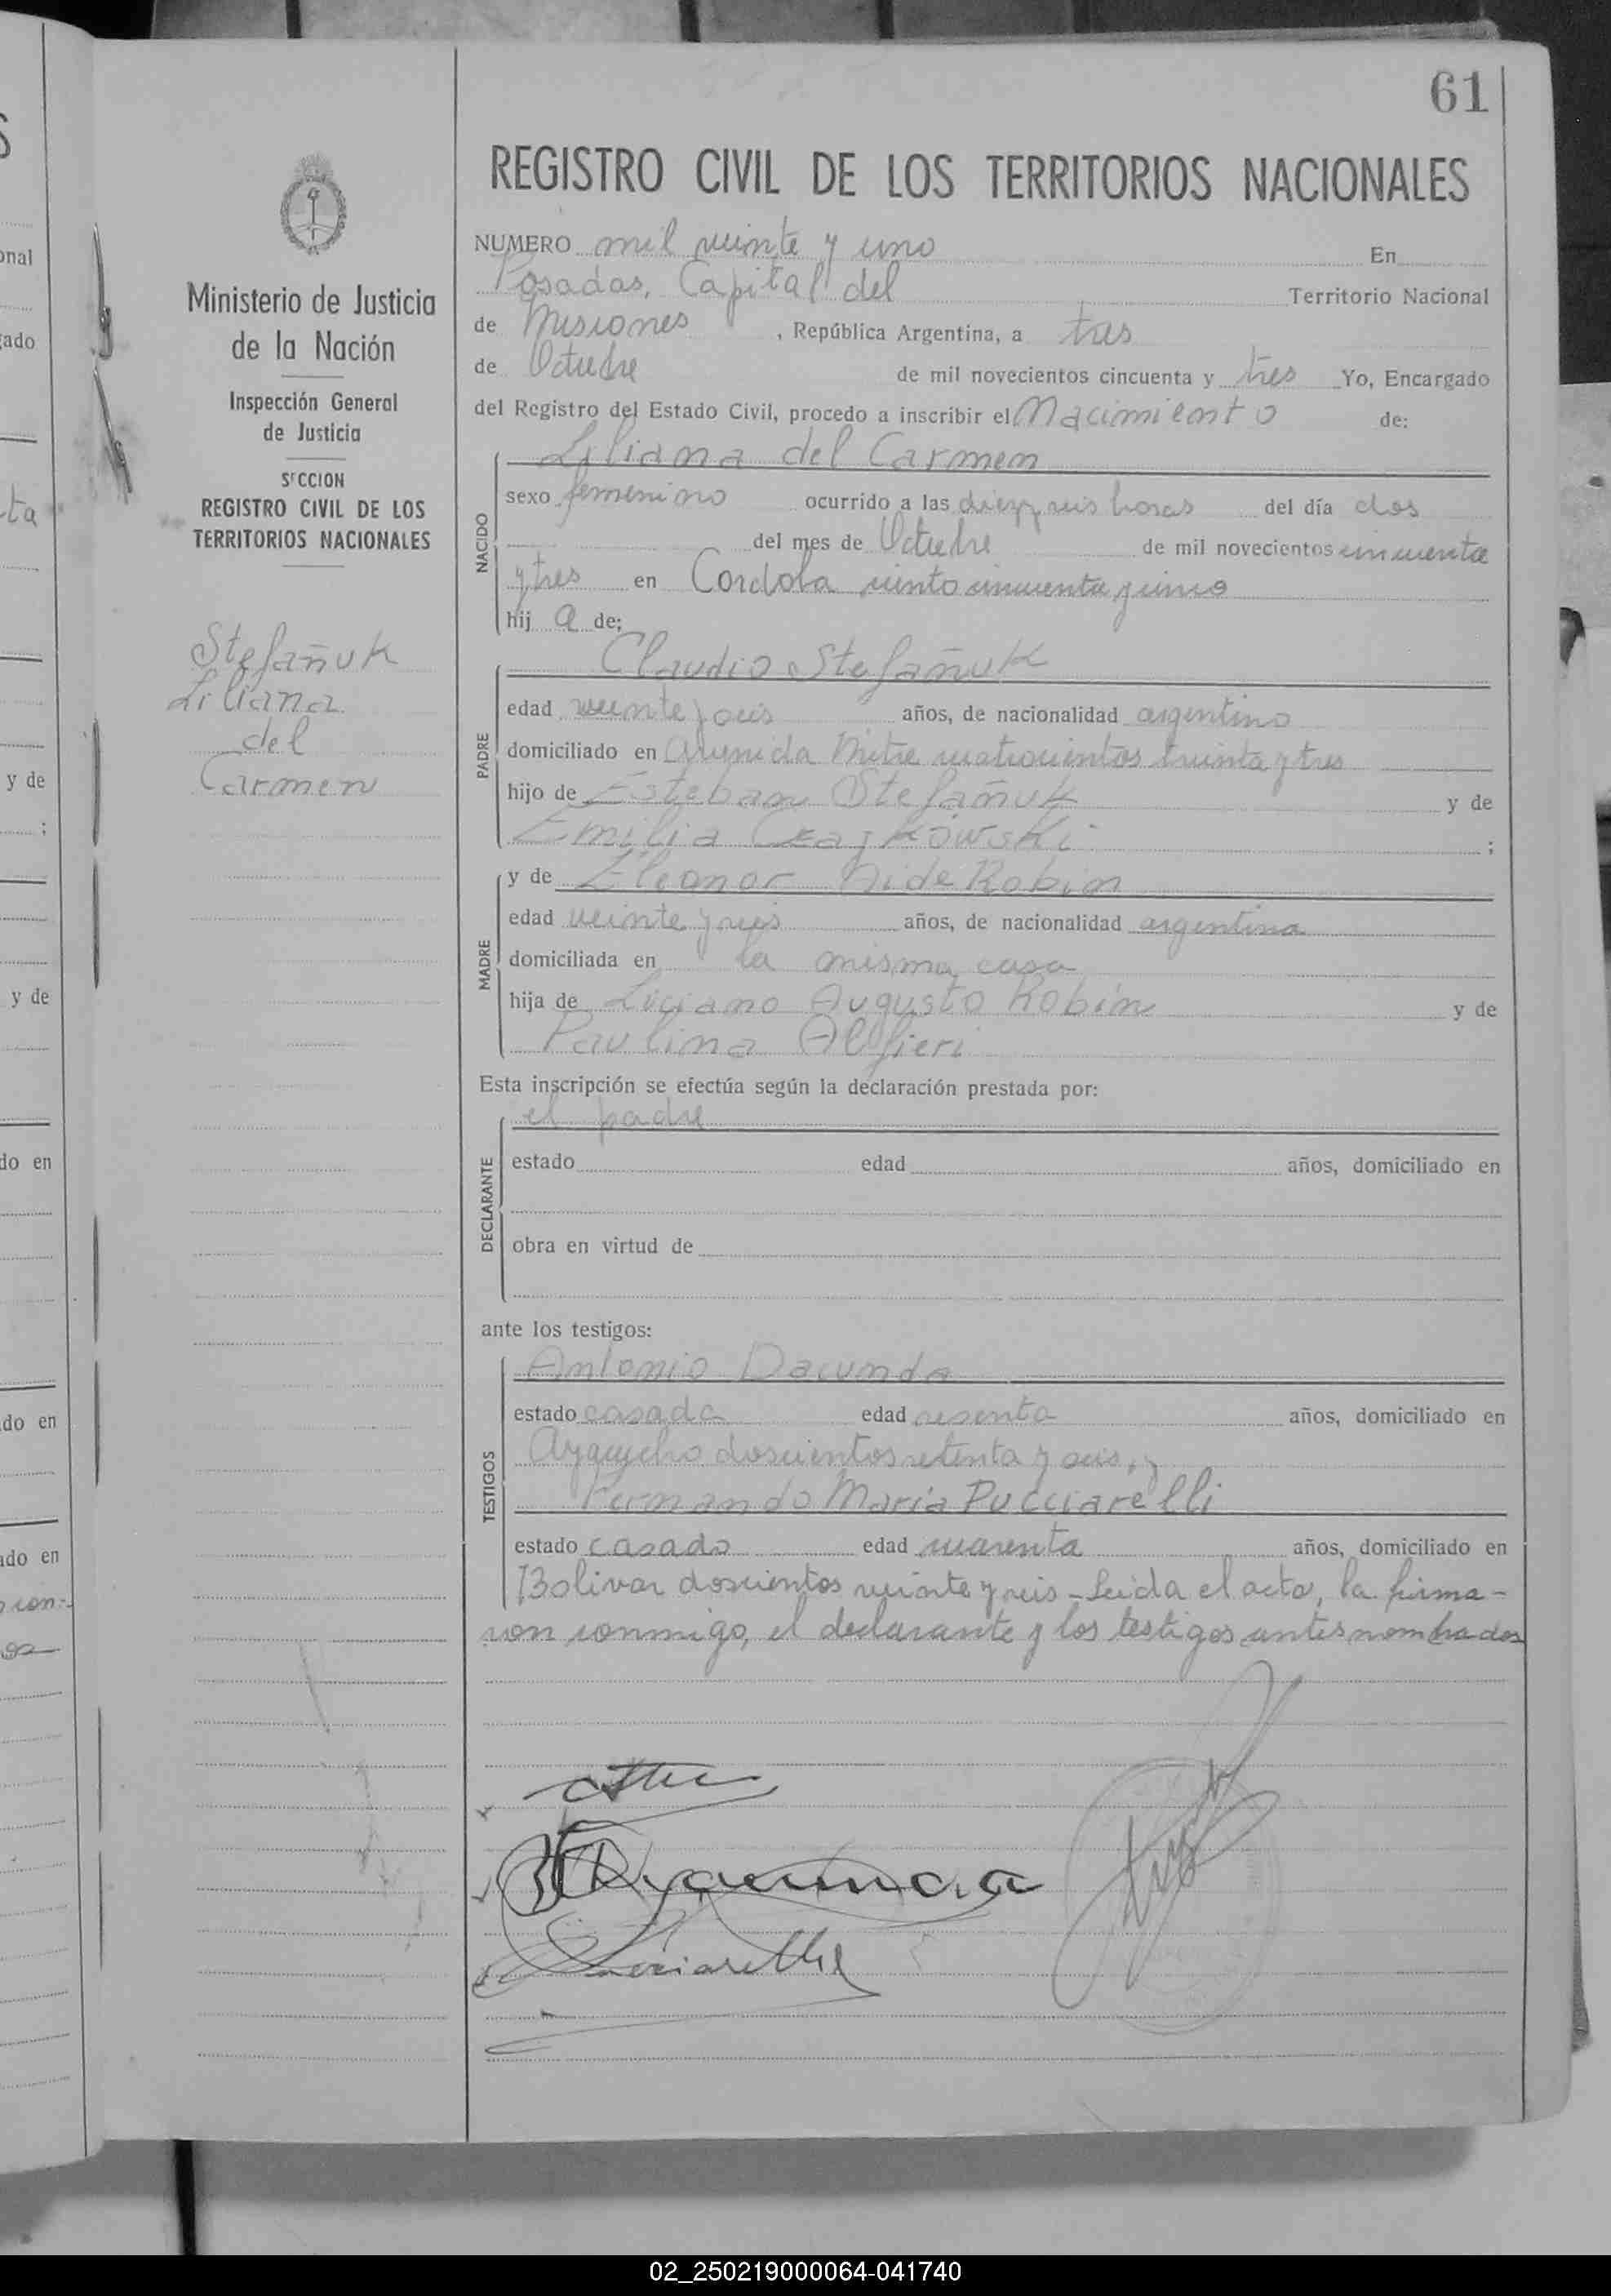 61
REGISTRO CIVIL DE LOS TERRITORIOS NACIONALES
NUMERO mil veinte y uno En
Posadas, Capital del Territorio Nacional
de Misiones , República Argentina, a tres
de Octubre de mil novecientos cincuenta y tres Yo, Encargado
del Registro del Estado Civil, procedo a inscribir el Nacimiento de:
Liliana del Carmen
NACIDO
sexo femenino ocurrido a las diez y seis horas del día dos
del mes de Octubre de mil novecientos cincuenta
y tres en Cordoba ciento cincuenta y cinco
hij a de:
Claudio Stefañuk
PADRE
edad veinte y seis años, de nacionalidad argentino
domiciliado en Avenida Mitre cuatrocientos treinta y tres
hijo de Esteban Stefañuk y de
Emilia Czajkowski ;
MADRE
y de Eleonor Aide Robin
edad veinte y seis años, de nacionalidad argentina
domiciliada en la misma casa
hija de Luciano Augusto Robin y de
Paulina Alfieri
Esta inscripción se efectúa según la declaración prestada por:
el padre
DECLARANTE
estado edad años, domiciliado en
obra en virtud de
ante los testigos:
Antonio Dacunda
TESTIGOS
estado casado edad sesenta años, domiciliado en
Ayacucho doscientos setenta y seis, y
Fernando Maria Pucciarelli
estado casado edad cuarenta años, domiciliado en
Bolivar doscientos veinte y seis - Leida el acta, la firma-
ron conmigo, el declarante y los testigos antes nombrados
Ministerio de Justicia
de la Nación
Inspección General
de Justicia
SECCION
REGISTRO CIVIL DE LOS
TERRITORIOS NACIONALES
Stefañuk
Liliana
del
Carmen
onal
gado
ta
y de
;
y de
do en
do en
do en
02_250219000064-041740